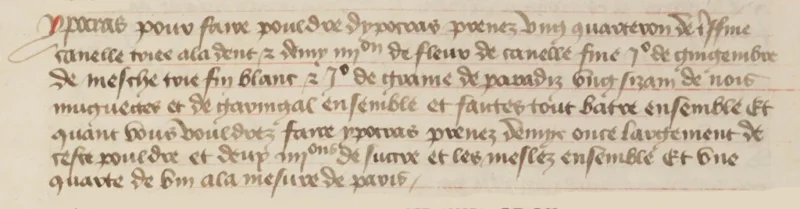 ypocras pour faire pouldre dypocras prenez vng quarteron de tresfine
canelle triee ala dent z demy iiiion de fleur de canelle fine 1° de gingembre
de mesche trie fin blanc z 1° de graine de paradiz vng sizain de nois
muguectes et de garingal ensemble et faictes tout batre ensemble Et
quant vous vouldrez faire ypocras prenez demye once largement de
ceste pouldre et deux iiiions de succre et les meslez ensemble Et vne
quarte de vin ala mesure de paris /